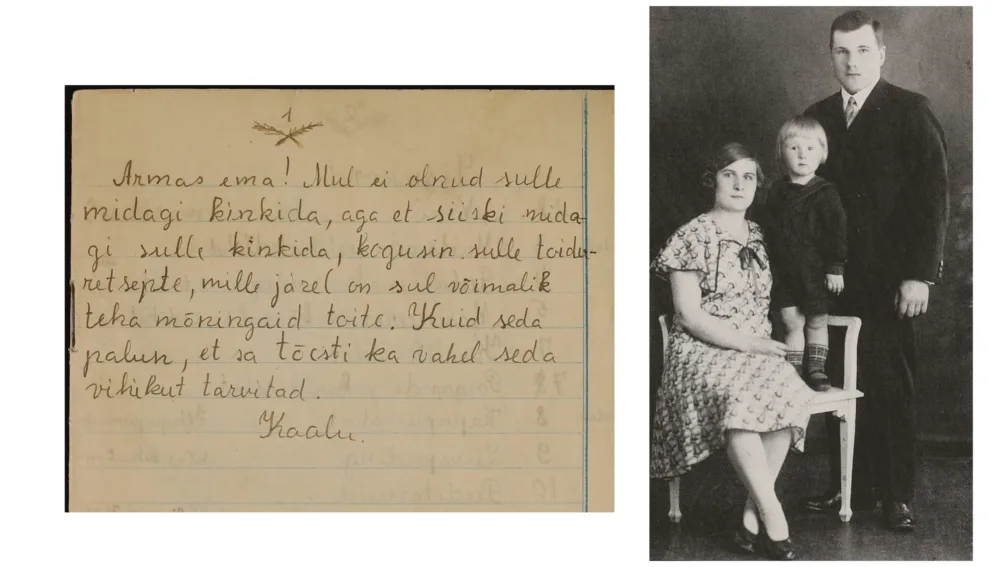 1
Armas ema! Mul ei olnud sulle
midagi kinkida, aga et siiski mida-
gi sulle kinkida, kogusin sulle toidu-
retsepte, mille järel on sul võimalik
teha mõningaid toite. Kuid seda
palun, et sa tõesti ka vahel seda
vihikut tarvitad.
Kaalu.
7
8
9
10